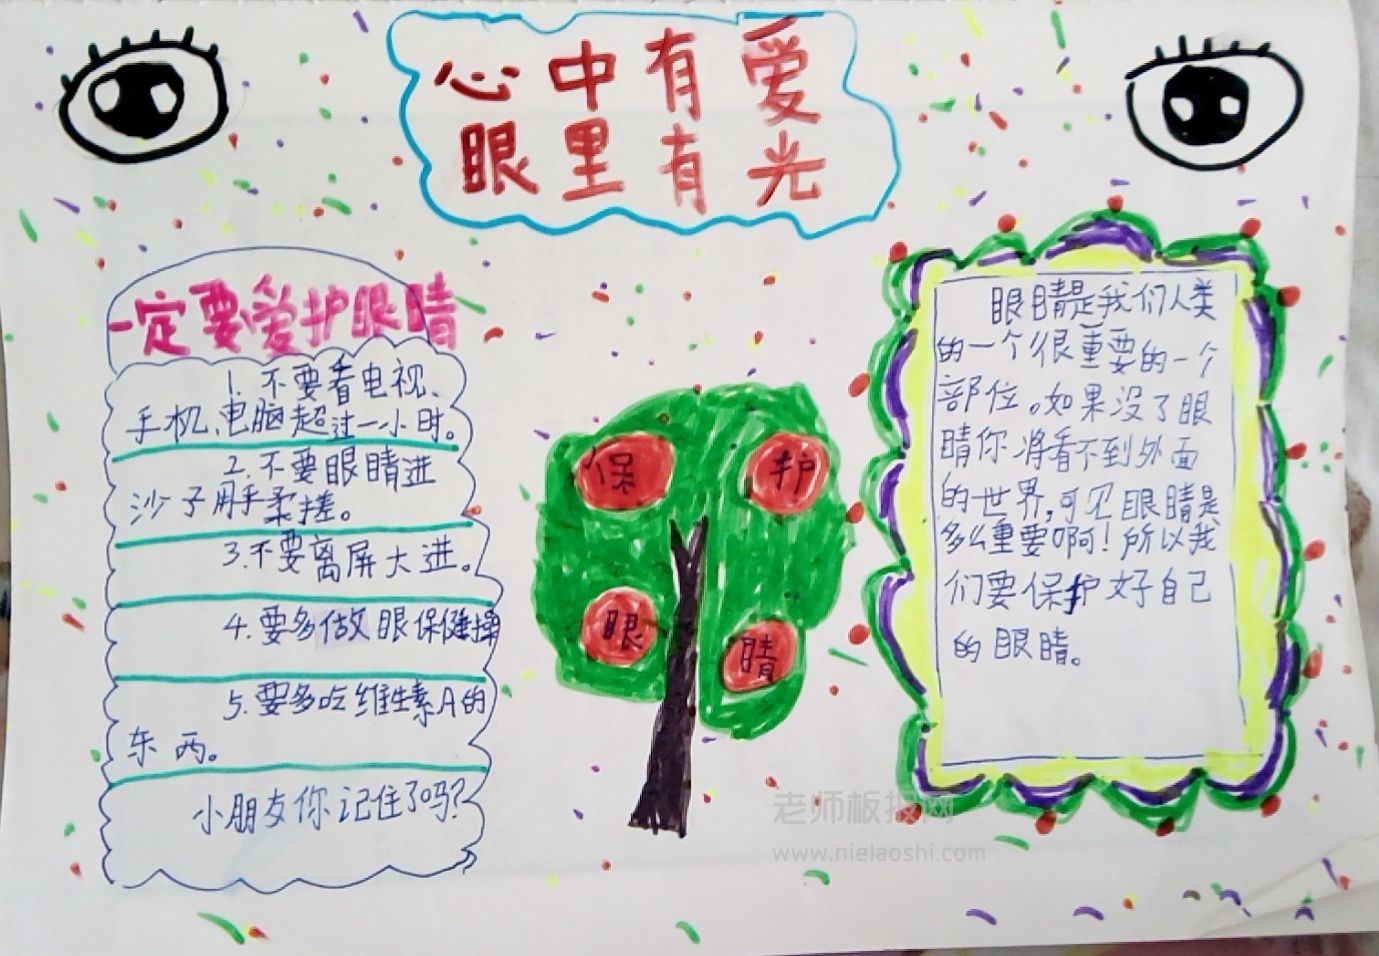 心中有爱
眼里有光
一定要爱护眼睛
1.不要看电视、
手机、电脑超过一小时。
2.不要眼睛进
沙子用手柔搓。
3.不要离屏大进。
4.要多做眼保健操
5.要多吃维生素A的
东西。
小朋友你记住了吗?
保护
眼睛
眼睛是我们人类
的一个很重要的一个
部位。如果没了眼
睛你将看不到外面
的世界,可见眼睛是
多么重要啊!所以我
们要保护好自己
的眼睛。
老师板报网
www.nielaoshi.com